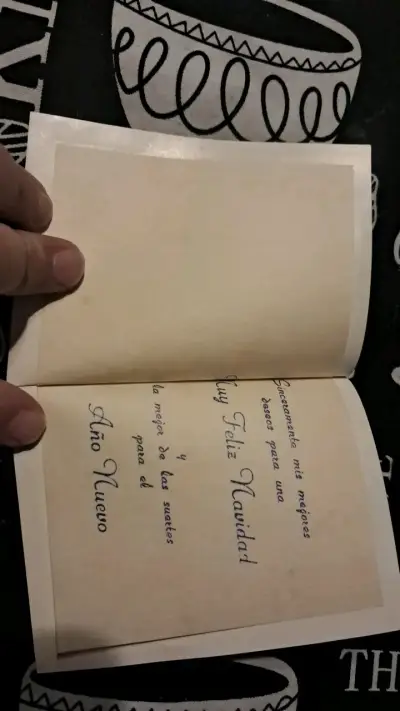 Sinceramente mis mejores
deseos para una
Muy Feliz Navidad
y
la mejor de las suertes
para el
Año Nuevo
TH